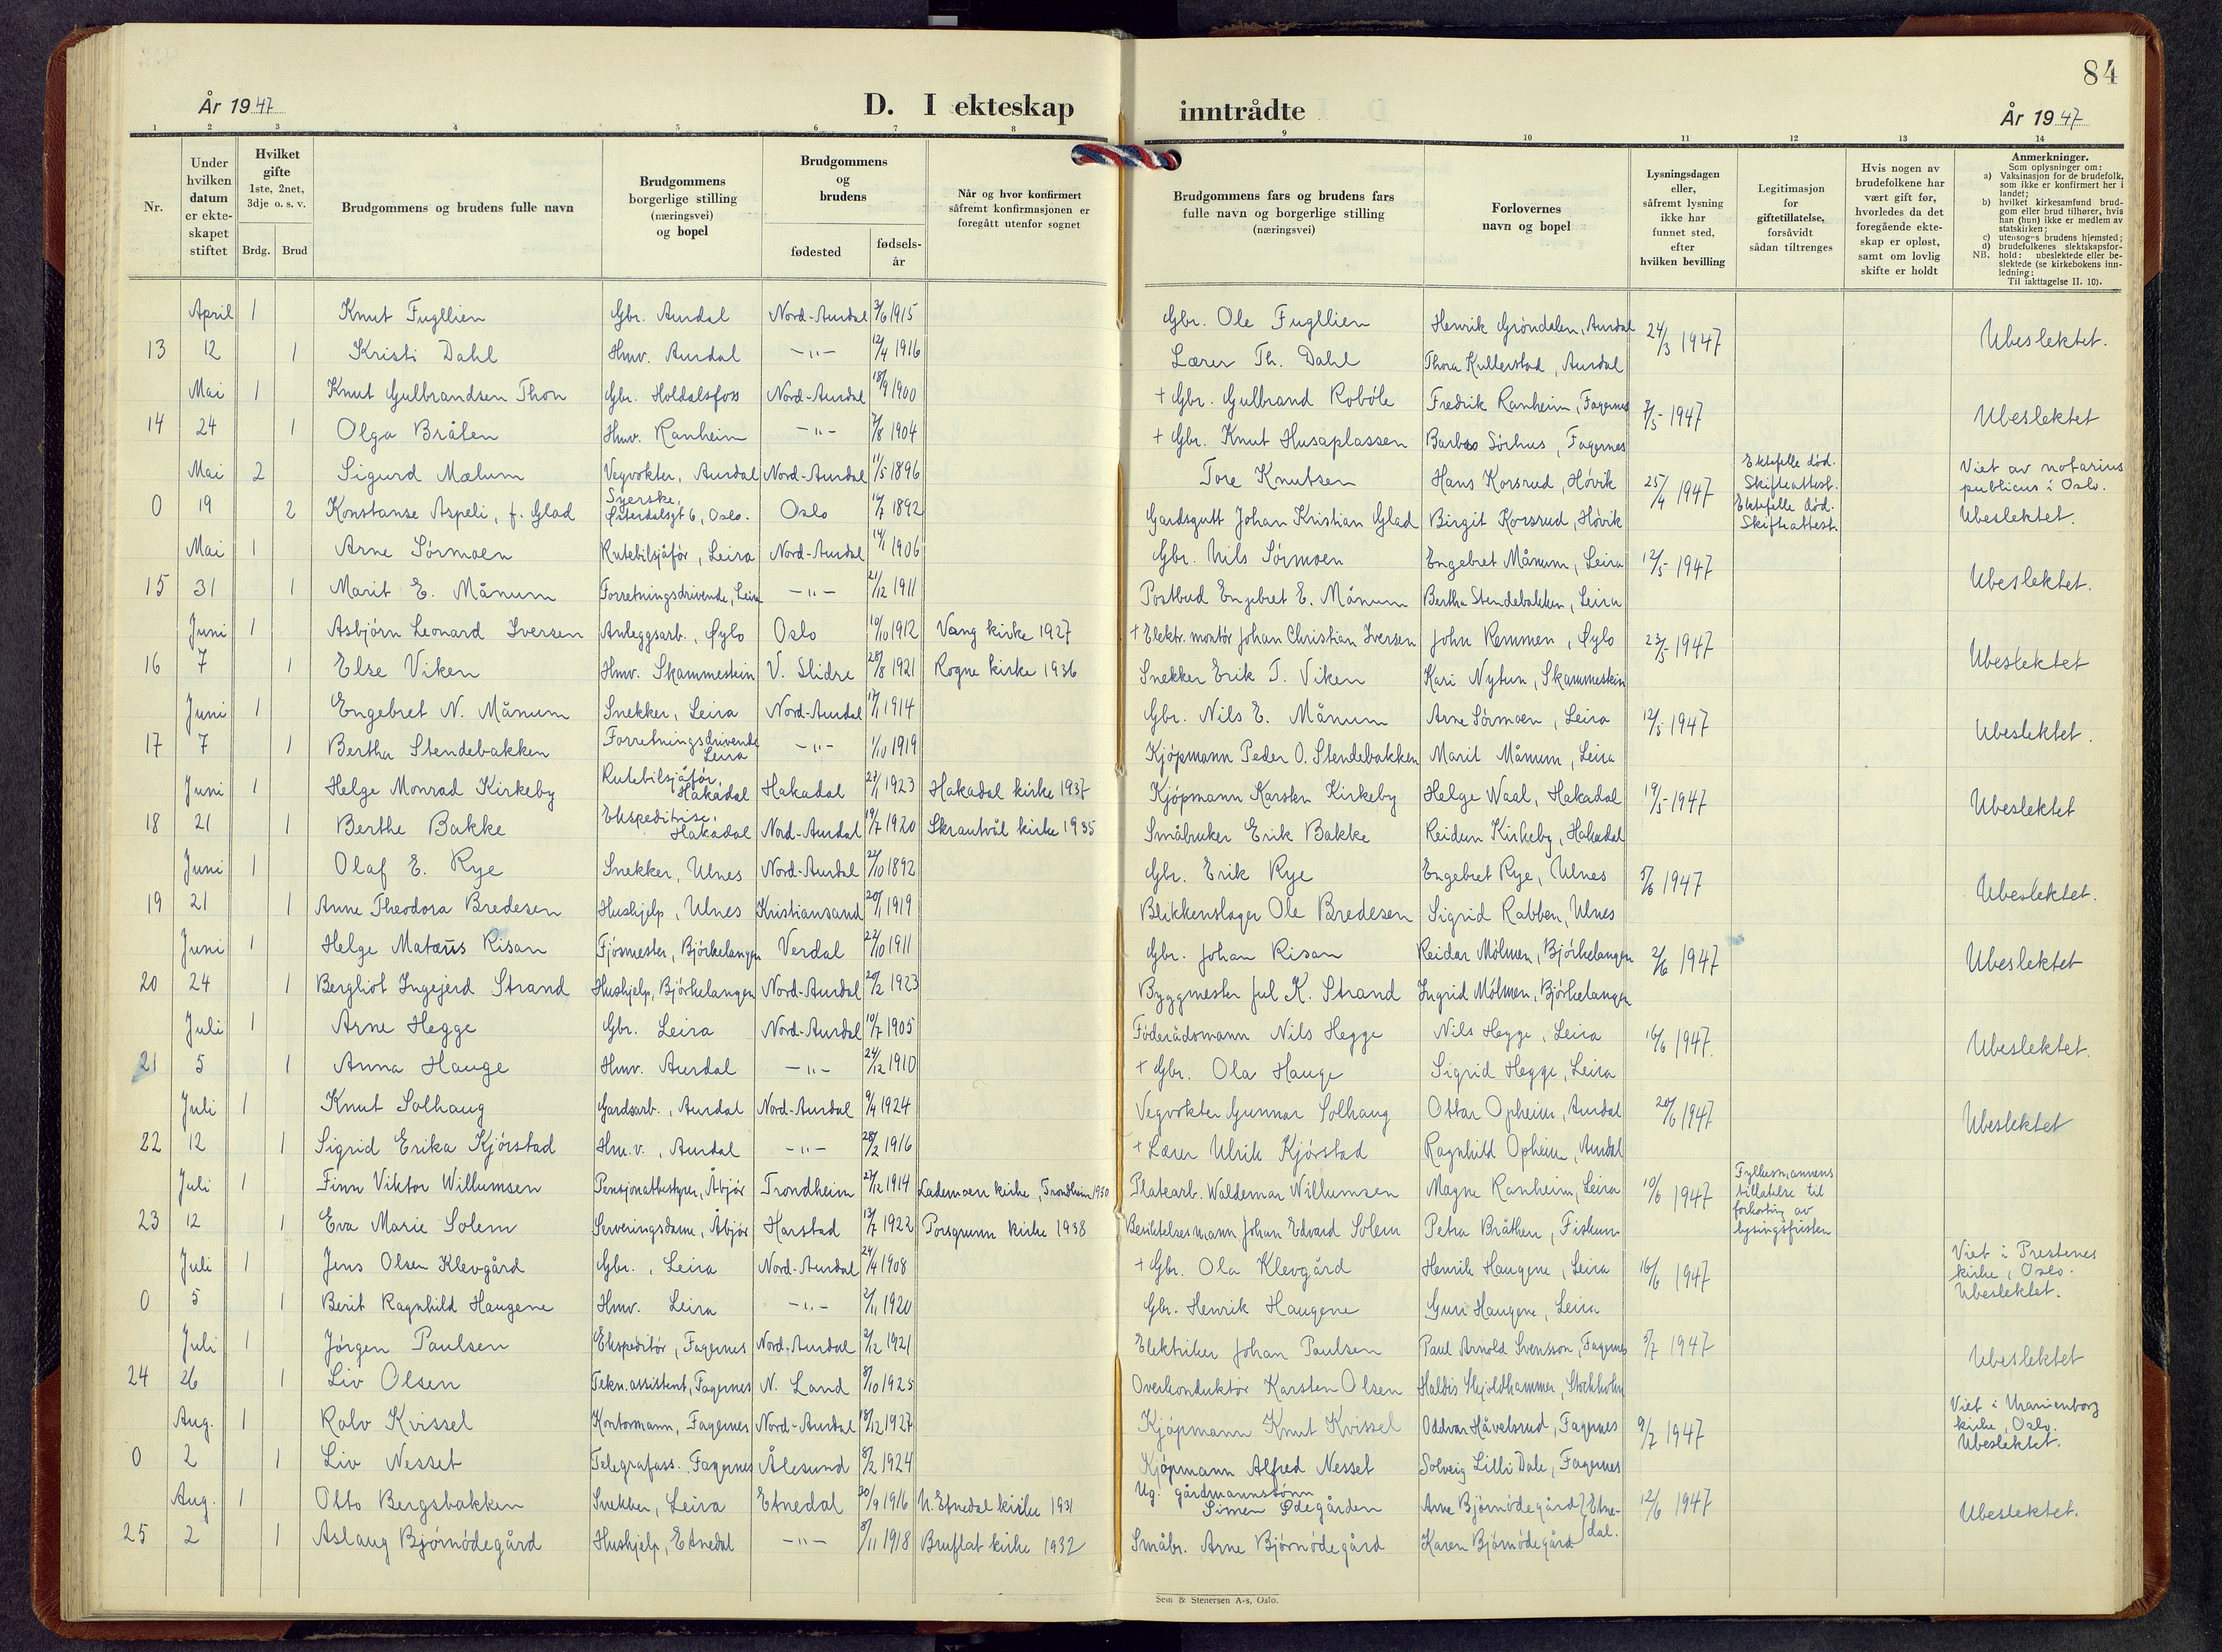 84
År 1947
D. I ekteskap
inntrådte
År 1947
1 2 3 4 5 6 7 8 9 10 11 12 13 14
Nr.
Under hvilken datum er ekte- skapet stiftet
Hvilket gifte 1ste, 2net, 3dje o. s. v.
Brdg. Brud
Brudgommens og brudens fulle navn
Brudgommens borgerlige stilling (næringsvei) og bopel
Brudgommens og brudens
fødested
fødsels- år
Når og hvor konfirmert såfremt konfirmasjonen er foregått utenfor sognet
Brudgommens fars og brudens fars fulle navn og borgerlige stilling (næringsvei)
Forlovernes navn og bopel
Lysningsdagen eller, såfremt lysning ikke har funnet sted, efter hvilken bevilling
Legitimasjon for giftetillatelse, forsåvidt sådan tiltrenges
Hvis nogen av brudefolkene har vært gift før, hvorledes da det foregående ekte- skap er opløst, samt om lovlig skifte er holdt
Anmerkninger.
Som oplysninger om:
a) Vaksinasjon for de brudefolk, som ikke er konfirmert her i landet;
b) hvilket kirkesamfund brud- gom eller brud tilhører, hvis han (hun) ikke er medlem av statskirken;
c) utensogns brudens hjemsted;
d) brudefolkenes slektskapsfor- hold: ubeslektede eller be- slektede (se kirkebokens inn- ledning:
NB.
Til iakttagelse II. 10).
April 1 Knut Fugllien Gbr. Aurdal Nord-Aurdal 3/6 1915 Gbr. Ole Fugllien Henrik Gröndalen, Aurdal 24/3 1947 Ubeslektet.
13 12 1 Kristi Dahl Hmv. Aurdal —"— 12/4 1916 Lærer Th. Dahl Thora Kullerstad, Aurdal
Mai 1 Knut Gulbrandsen Thon Gbr. Holdalsfoss Nord-Aurdal 18/9 1900 + Gbr. Gulbrand Roböle Fredrik Ranheim, Fagernes 7/5 - 1947 Ubeslektet
14 24 1 Olga Bråten Hmv. Ranheim —"— 7/8 1904 + Gbr. Knut Husaplassen Barbro Sörhus, Fagernes
Mai 2 Sigurd Mælum Vegvokter, Aurdal Nord-Aurdal 11/5 1896 Tore Knutsen Hans Korsrud, Hövik 25/4 1947 Ektefelle död. Skifteattest. Viet av notarius publicus i Oslo.
0 19 2 Konstanse Aspeli, f. Glad Syerske, Østerdalsgt 6, Oslo. Oslo 14/7 1892 Gardsgutt Johan Kristian Glad Birgit Korsrud, Hövik Ektefelle död. Skifteattest. Ubeslektet.
Mai 1 Arne Sörmoen Rutebilsjåför, Leira Nord-Aurdal 14/1 1906 Gbr. Nils Sörmoen Engebret Månum, Leira 12/5 - 1947 Ubeslektet.
15 31 1 Marit E. Månum Forretningsdrivende, Leira —"— 21/12 1911 Postbud Engebret E. Månum Bertha Stendebakken, Leira
Juni 1 Asbjörn Leonard Iversen Anleggsarb., Øylo Oslo 10/10 1912 Vang kirke 1927 + Elektr. montör Johan Christian Iversen John Remmen, Øylo 23/5 - 1947 Ubeslektet
16 7 1 Else Viken Hmv. Skammestein V. Slidre 28/8 1921 Rogne kirke 1936 Snekker Erik T. Viken Kari Nytun, Skammestein
Juni 1 Engebret N. Månum Snekker, Leira Nord-Aurdal 17/1 1914 Gbr. Nils E. Månum Arne Sörmoen, Leira 12/5 1947 Ubeslektet.
17 7 1 Bertha Stendebakken Forretningsdrivende Leira —"— 1/10 1919 Kjöpmann Peder O. Stendebakken Marit Månum, Leira
Juni 1 Helge Monrad Kirkeby Rutebilsjåför, Hakadal Hakadal 21/1 1923 Hakadal kirke 1937 Kjöpmann Karsten Kirkeby Helge Waal, Hakadal 19/5 - 1947 Ubeslektet
18 21 1 Berthe Bakke Ekspeditrise, Hakadal Nord-Aurdal 19/7 1920 Skrautvål kirke 1935 Småbruker Erik Bakke Reidun Kirkeby, Hakadal
Juni 1 Olaf E. Rye Snekker, Ulnes Nord-Aurdal 22/10 1892 Gbr. Erik Rye Engebret Rye, Ulnes 5/6 1947 Ubeslektet.
19 21 1 Anne Theodora Bredesen Hushjelp, Ulnes Kristiansand 20/1 1919 Blikkenslager Ole Bredesen Sigrid Rabben, Ulnes
Juni 1 Helge Matæus Risan Fjösmester, Björkelangen Verdal 22/10 1911 Gbr. Johan Risan Reidar Mölmen, Björkelangen 2/6 1947 Ubeslektet
20 24 1 Bergliot Ingejerd Strand Hushjelp, Björkelangen Nord-Aurdal 20/2 1923 Byggmester Jul K. Strand Ingrid Mölmen, Björkelangen
Juli 1 Arne Hegge Gbr. Leira Nord-Aurdal 10/7 1905 Föderådsmann Nils Hegge Nils Hegge, Leira 16/6 1947. Ubeslektet.
21 5 1 Anna Hauge Hmv. Aurdal —"— 24/12 1910 + Gbr. Ola Hauge Sigrid Hegge, Leira
Juli 1 Knut Solhaug Gardsarb., Aurdal Nord-Aurdal 9/4 1924 Vegvokter Gunnar Solhaug Ottar Opheim, Aurdal 20/6 1947 Ubeslektet
22 12 1 Sigrid Erika Kjörstad Hm.v., Aurdal —"— 28/2 1916 + Lærer Ulrik Kjörstad Ragnhild Opheim, Aurdal
Juli 1 Finn Viktor Willumsen Pensjonatbestyrer, Åbjör Trondheim 27/12 1914 Lademoen kirke, Trondheim 1930 Platearb. Waldemar Willumsen Magne Ranheim, Leira 10/6 1947 Fylkesmannens tillatelse til forkorting av lysingsfristen
23 12 1 Eva Marie Solem Serveringsdame, Åbjör Harstad 13/7 1922 Porsgrunn kirke 1938 Beskikkelsesmann Johan Edvard Solem Petra Bråthen, Fiskum
Juli 1 Jens Olsen Klevgård Gbr., Leira Nord-Aurdal 24/4 1908 + Gbr. Ola Klevgård Henrik Haugene, Leira 16/6 1947 Viet i Prestenes kirke, Oslo. Ubeslektet.
0 5 1 Berit Ragnhild Haugene Hmv. Leira —"— 2/11 1920 Gbr. Henrik Haugene Guri Haugene, Leira
Juli 1 Jörgen Paulsen Ekspeditör, Fagernes Nord-Aurdal 2/12 1921 Elektriker Johan Paulsen Paul Arnold Svensson, Fagernes 5/7 1947 Ubeslektet
24 26 1 Liv Olsen Tekn. assistent, Fagernes N. Land 8/10 1925 Overkonduktör Karsten Olsen Haldis Skjoldhammer, Stockholm
Aug. 1 Rolv Kvissel Kontormann, Fagernes Nord-Aurdal 18/12 1927 Kjöpmann Knut Kvissel Oddvar Håvelsrud, Fagernes 9/7 1947 Viet i Uranienborg kirke, Oslo. Ubeslektet.
0 2 1 Liv Nesset Telegrafass. Fagernes Ålesund 8/2 1924 Kjöpmann Alfred Nesset Solveig Lilli Dale, Fagernes
Aug. 1 Otto Bergsbakken Snekker, Leira Etnedal 20/9 1916 N. Etnedal kirke 1931 Ug. gårdmannssönn Simen Ødegården Arne Björnödegård, Etnedal. 12/6 1947 Ubeslektet.
25 2 1 Aslaug Björnödegård Hushjelp, Etnedal —"— 8/11 1918 Bruflat kirke 1932 Småbr. Arne Björnödegård Karen Björnödegård
Sem & Stenersen A-s, Oslo.